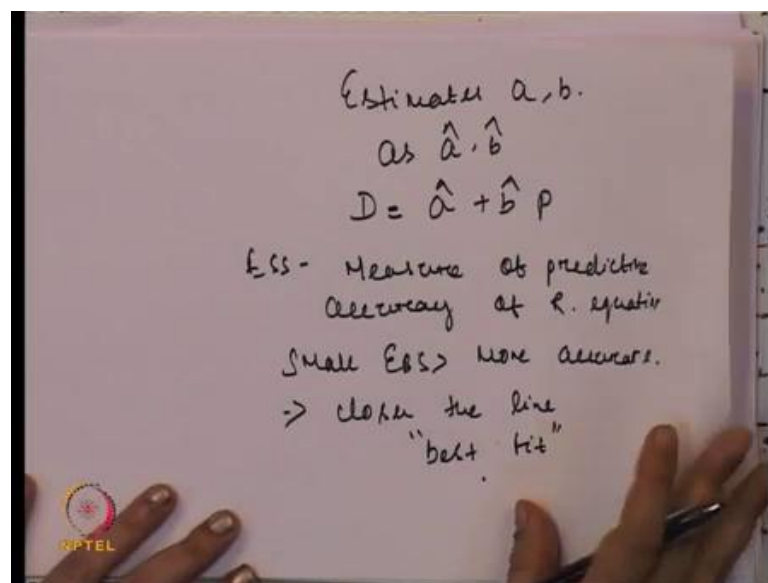 Estimates a, b.
as â, b̂
D = â + b̂ P
ESS - Measure of predictive
accuracy of R. equation
Small ESS > more accurate.
-> closer the line
"best fit"
NPTEL